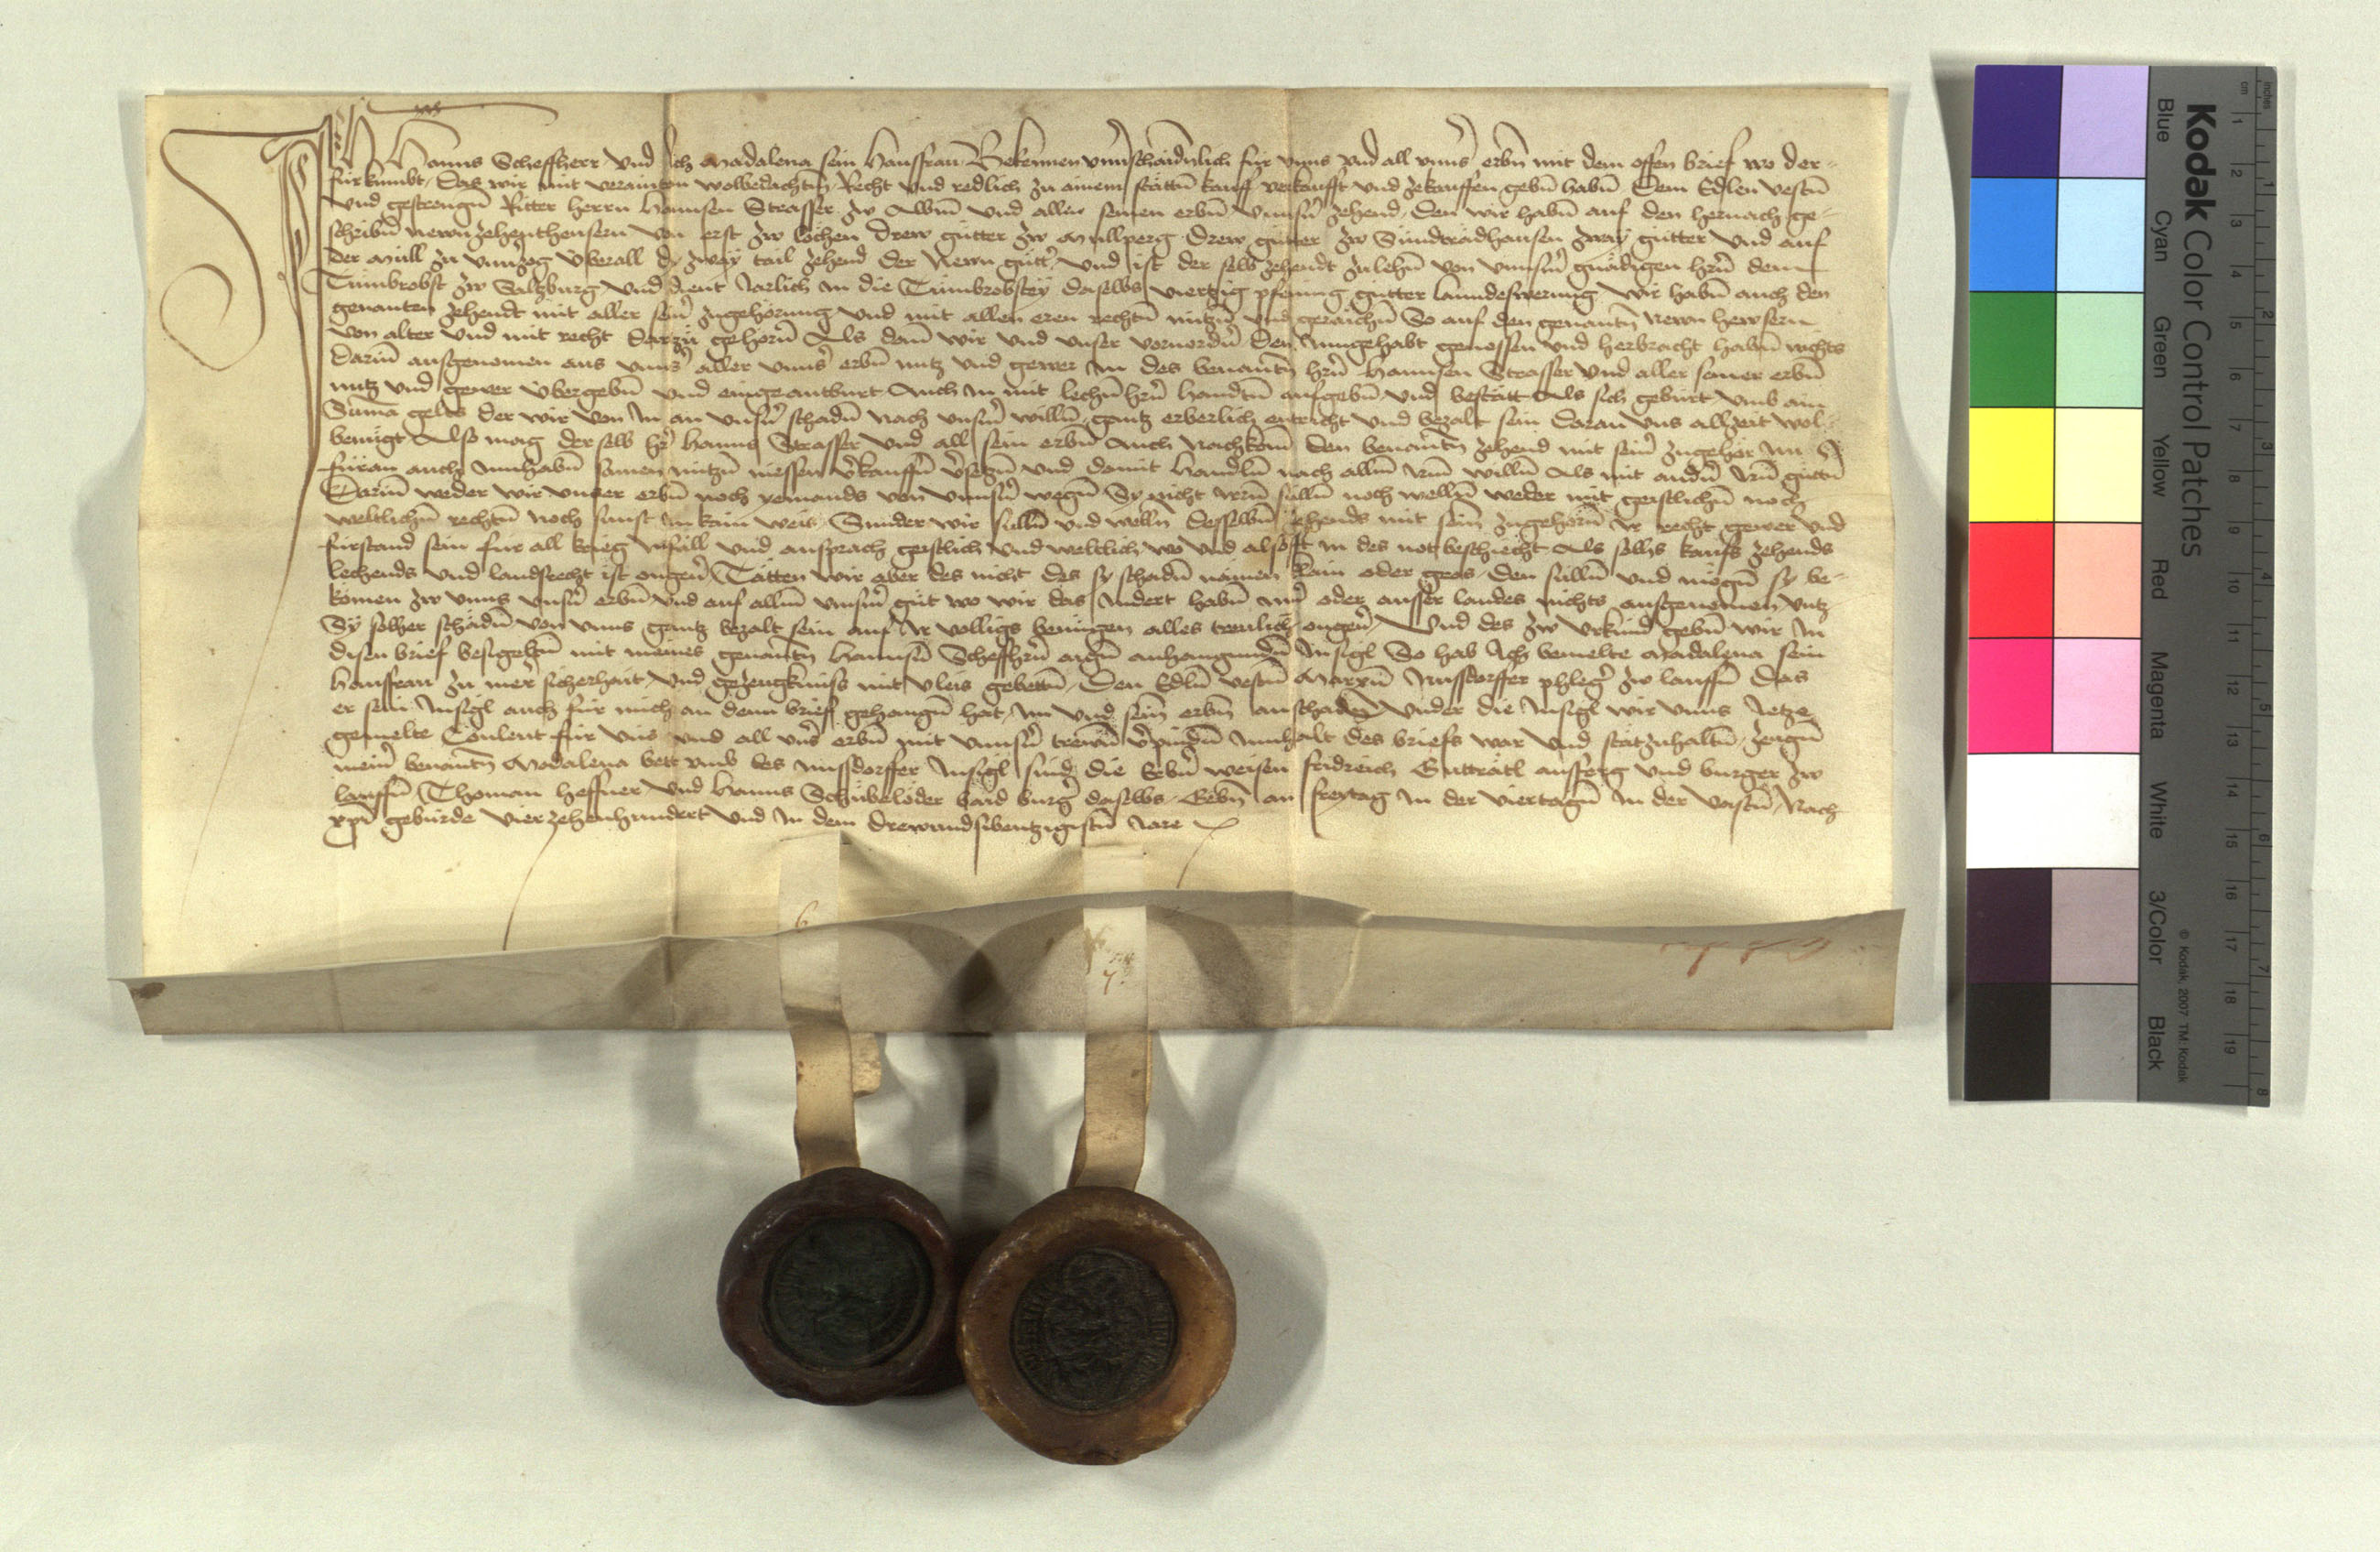 Ich Hanns Scheffherr vnd Ich Madalena sein Hausfrau Bekennen vnuerschaidnlich für vnns vnd all vnns̉ erbn̄ mit dem offen brief wo der-
fürkumbt, das wir mit verainten wolbedachtn̄ Recht vnd redlich zu ainem stättn̄ kauff verkaufft vnd zekauffen gebn̄ habn̄, Dem Edlen vestn̄
vnd gestrengn̄ Ritter herrn Hannsen Strasser zw Albm̄ vnd allen seinen erbn̄ vnnsn̉ zehend, den wir habn̄ auf den hernach ge-
schribn̄ newn zehenthewsern von erst zw lochen Drew gütter zw Mullperg Drew gütter zw Sundträdhausen zway gütter vnd auf
der Mull zu vnnzog vberall dy zway tail zehend der Newn gütt̉ vnd ist der selb zehendt zulehn̄ von vnnsm̉ gnädigen hrn̉ dem
Tumbrobst zw Saltzburg vnd dient Järlich in die Tumbrobstey daselbs viertzig pfening gütter lanndeswerung wir habn̄ auch den
genanten zehendt mit aller sein̉ zugehörung vnd mit allen eren rechtn̄ nützn̄ vnd geraichn̄ So auf den genantn̄ newn hewsern
von alter vnd mit recht darzu gehörn̄ Als dann wir vnd vnser voruordn̉ den Inngehabt genossen vnd herbracht habn̄ nichts
darin̄ ausgenomen aus vnns̉ aller vnns̉ erbn̄ nutz vnd gewer In des benantn̄ hrn̉ Hannsen Strasser vnd aller seiner erbn̄
nutz vnd gewer vbergebn̄ vnd eingeantburt Auch In mit lechn̄hrn̉ handtn̄ aufgebn̄ vnd bestätt Als sich gebürt vmb ain
Suma gelts der wir von In an vnsn̉ schadn̄ nach vnsm̉ willn̄ gantz erberlich entricht vnd bezalt sein daran vns allzeit wol-
benügt Also mag der selb hr̉ Hanns Strasser vnd all sein erbn̄ Auch nachkom̄ den benantn̄ zehend mit sein̉ zugehör nu
füran auch Innhabn̄ Innen nützn̄ niessen v̉kauffn̄ v̉setzn̄ vnd damit handln̄ nach allm̄ Irm̄ willn̄ Als mit andn̉ Irn̄ güttn̄
Darin̄ weder wir vnnser erbn̄ noch yemands von vnnsn̉ wegn̄ Sy nicht Irrn̄ sulln̄ noch welln̄ weder mit geistlichn̄ noch
weltlichn̄ rechtn̄ noch sunst In kain weis Sunder wir sulln̄ vnd welln̄ desselbn̄ zehends mit sein̄ zugehörn̄ Ir recht gewer vnd
fürstand sein für all krieg Infäll vnd ansprach geistlich vnd weltlich wo vnd alsofft In des not beschiecht Als solhs kaufs zehends
lechends vnd landsrecht ist ongeủ Tätten wir aber des nicht des sy schadn̄ nämen klain oder gros, den sulln̄ vnd mögn̄ sy be-
komen zw vnns vnsn̉ erbn̄ vnd auf allm̄ vnnsm̉ güt wo wir das Indert habn̄ Inn̉ oder ausser landes nichts ausgenomen vntz
Sy solher schädn̄ von vnns gantz bezalt sein auf Ir volligs benügen alles trewlich ongeủ Vnd des zw vrkund gebn̄ wir In
disen brief besigeltn̄ mit meines genantn̄ Hannsn̄ Scheffhrn̉ aign̄ anhangundm̄ Insigl So hab Ich bemelte Madalena sein
Hausfrau zu mer̉ sicherhait vnd gezeugknuss mit vleis gebettn̄, Den Edln̄ vestn̄ Marxn̄ Nussdorffer phleg̉ zw lauffn̄ Das
er sein Insigl auch für mich an denn brief gehangn̄ hat, Im vnd sein̄ erbn̄ anschadn̄ vnder die Insigl wir vnns Jetze
gemelte Conleut für vns vnd all vns̉ erbn̄ mit vnnsn̉ trewn̄ v̉pindn̄ Innhalt des briefs war vnd stätzuhaltn̄, zeugn̄
mein̉ benantn̄ Madalena bett vmb des nussdorffer Insigl sind die Erbn̉ weisen fridreich Guträtl ausferg vnd burger zw
lauffn̄ Thoman heffner vnd Hanns Schübelöder baid burg̉ daselbs, Gebn̄ an freytag In der viertagn̄ In der vastn̄, Nach
xpi gebürde vierzehenhundert vnd In dem drewundsibentzigistn̄ Jare
6
7.
Kodak Color Control Patches
Blue Cyan Green Yellow Red Magenta White 3/Color Black
© Kodak, 2007 TM: Kodak
inches 1 2 3 4 5 6 7 8
cm 1 2 3 4 5 6 7 8 9 10 11 12 13 14 15 16 17 18 19